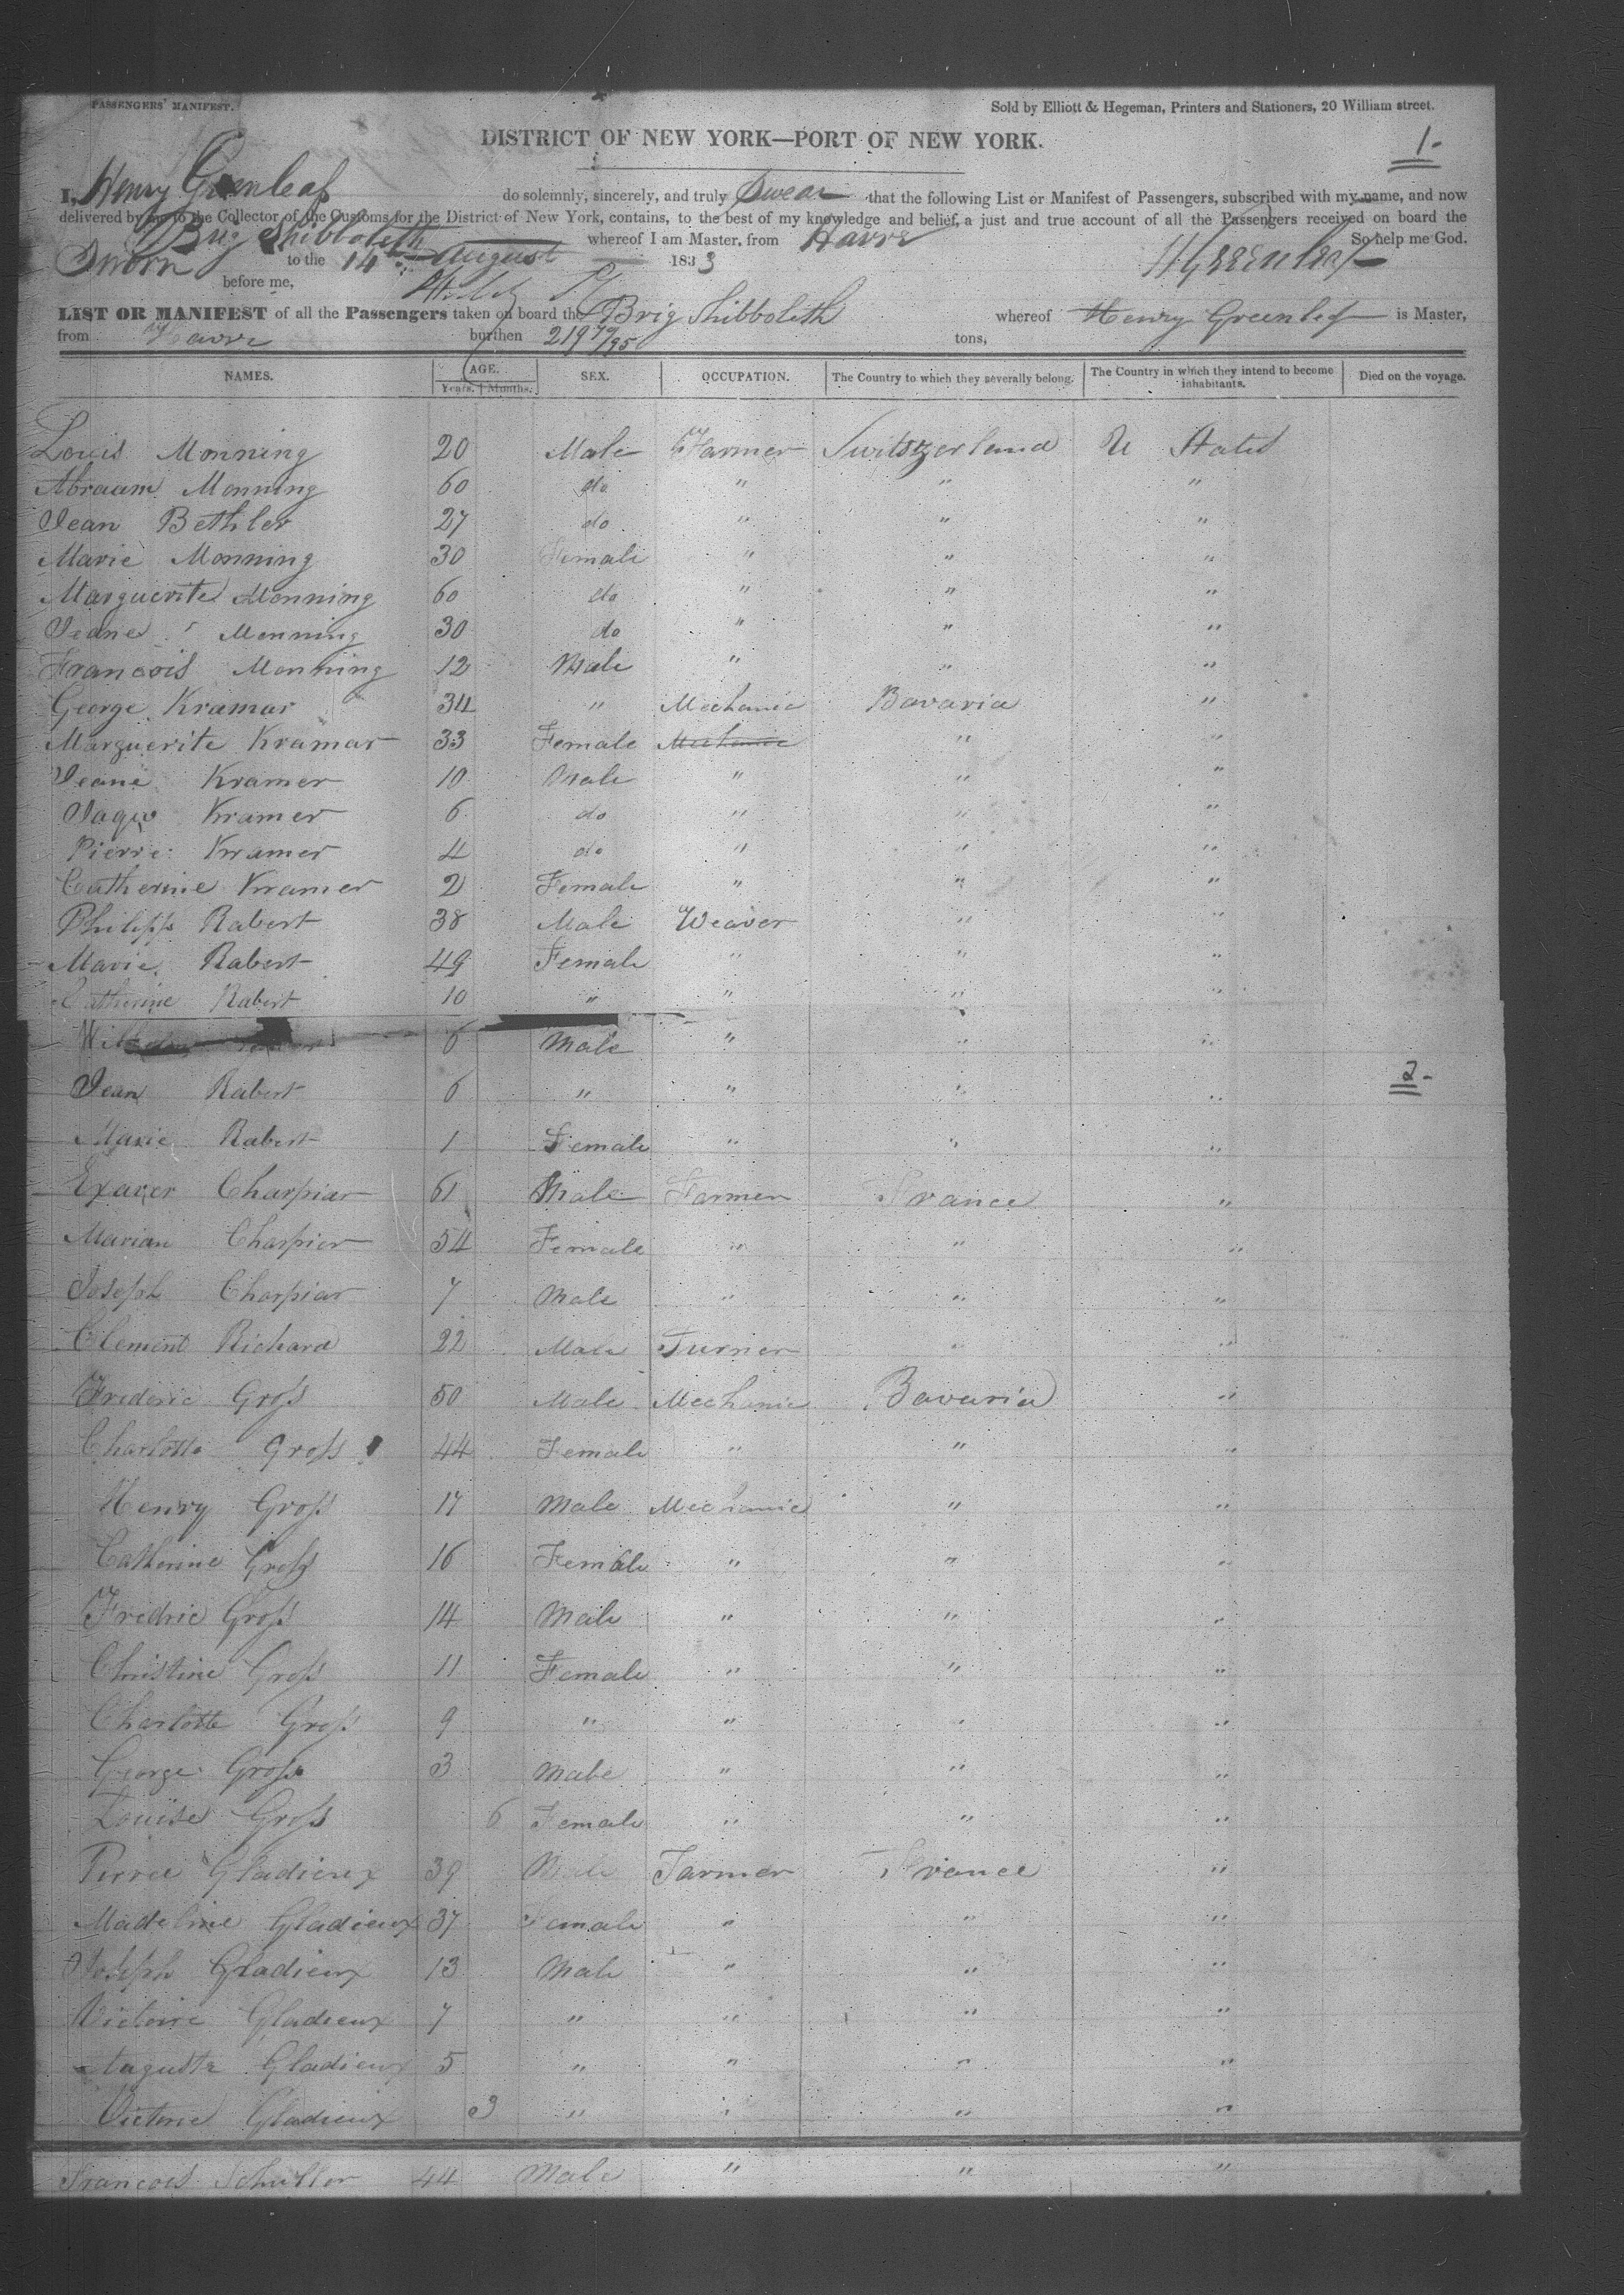 PASSENGERS' MANIFEST.
Sold by Elliott & Hegeman, Printers and Stationers, 20 William street.
DISTRICT OF NEW YORK—PORT OF NEW YORK.
1-
I, Henry Greenleaf do solemnly, sincerely, and truly Swear that the following List or Manifest of Passengers, subscribed with my name, and now
delivered by me to the Collector of the Customs for the District of New York, contains, to the best of my knowledge and belief, a just and true account of all the Passengers received on board the
Brig Shibboleth whereof I am Master, from Havre So help me God.
Sworn to the 14th August 1833 HGreenleaf
before me,
LIST OR MANIFEST of all the Passengers taken on board the Brig Shibboleth whereof Henry Greenleaf is Master,
from Havre burthen 219 79/95 tons,
NAMES. AGE. Years. Months. SEX. OCCUPATION. The Country to which they severally belong. The Country in which they intend to become inhabitants. Died on the voyage.
Louis Monning 20 Male Farmer Switszerland U States
Abraam Monning 60 do " " "
Jean Bethler 27 do " " "
Marie Monning 30 Female " " "
Marguerite Monning 60 do " " "
Jeane Monning 30 do " " "
Francois Monning 12 Male " " "
George Kramar 34 " Mechanic Bavaria "
Marguerite Kramar 33 Female Mechanic " "
Jeane Kramer 10 Male " " "
Jaque Kramer 6 do " " "
Pierre Kramer 4 do " " "
Catherine Kramer 2 Female " " "
Philipp Rabert 38 Male Weaver " "
Marie Rabert 49 Female " " "
Catherine Rabert 10 " " " "
6 Male " " "
Jean Rabert 6 " " " " 2-
Marie Rabert 1 Female " " "
Exaver Charpiar 61 Male Farmer France "
Marian Charpier 54 Female " " "
Joseph Charpiar 7 Male " " "
Clement Richard 22 Male Turner " "
Frederic Groß 50 Male Mechanic Bavaria "
Charlotte Groß 44 Female " " "
Henry Groß 17 Male Mechanic " "
Catherine Groß 16 Female " " "
Fredric Groß 14 Male " " "
Christine Groß 11 Female " " "
Charlotte Groß 9 " " " "
George Groß 3 Male " " "
Louise Groß 6 Female " " "
Pierre Gladieux 39 Male Farmer France "
Madeline Gladieux 37 Female " " "
Joseph Gladieux 13 Male " " "
Victoire Gladieux 7 " " " "
Auguste Gladieux 5 " " " "
Victorie Gladieux 3 " " " "
Francois Schuller 44 Male " " "